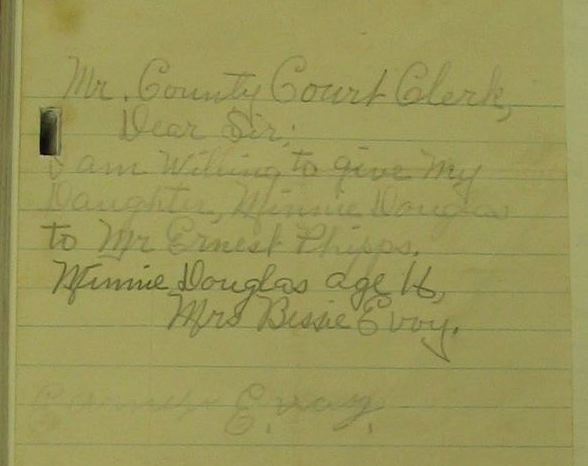 Mr. County Court Clerk,
Dear Sir;
I am Willing to give My
Daughter, Minnie Douglas
to Mr Ernest Phipps.
Minnie Douglas age 16,
Mrs Bissie Evoy.
E. voy.